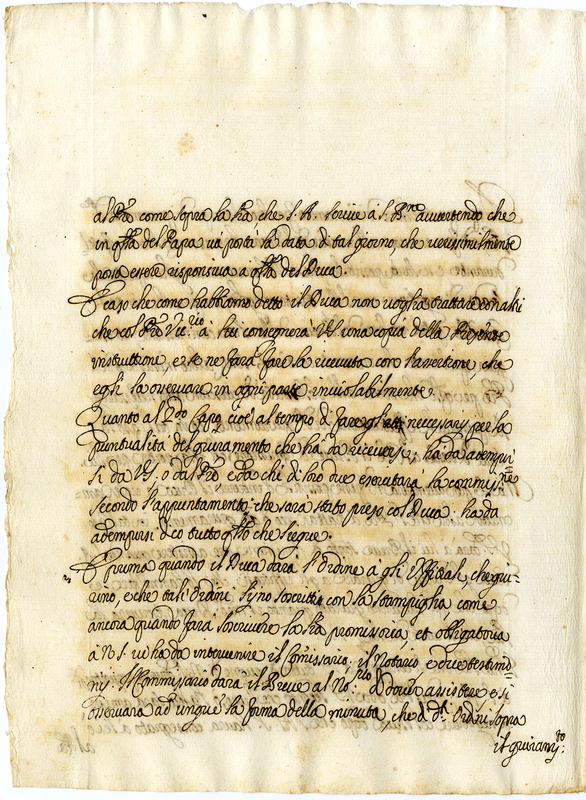 al Pre come sopra la lra che S. A. scrive a S. Bne avvertendo che
in qlla del Papa va posta la data di tal giorno, che verisimilmente
possa essere risponsiva a qlla del Duca.
E caso che come habbiamo detto il Duca non voglia trattare con altri
che col Pre Vic.rio à lui consegnerà VS. una copia della presente
instruttione, e se ne farà fare la ricevuta con l'asserzione, che
egli la osservare in ogni parte inviolabilmente.
Quanto al 2do Capo cioè al tempo di fare gli atti necessarij per la
puntualità del giuramento che hà da riceversi; ha da adempir
si da VS. o dal Pre, e da chi di loro due esseguitarà la commissne
secondo l'appuntamento che sarà stato preso col Duca: ha da
adempirsi dco tutto qllo che siegue.
E prima quando il Duca darà l'ordine a gli Offitiali, che giu-
rino, e che tali ordini sijno soscritti con la stampiglia, come
ancora quando farà soscrivere la lra promissoria, et obligatoria
a N. S. ve ha da intervenire il Comissario, il Notario e due testimo
nij. Il Commissario darà il Breve al No.rio dovrà assistere e si
osservarà ad unguem la forma della minuta, che d. di Ordini sopra
il giuramto: